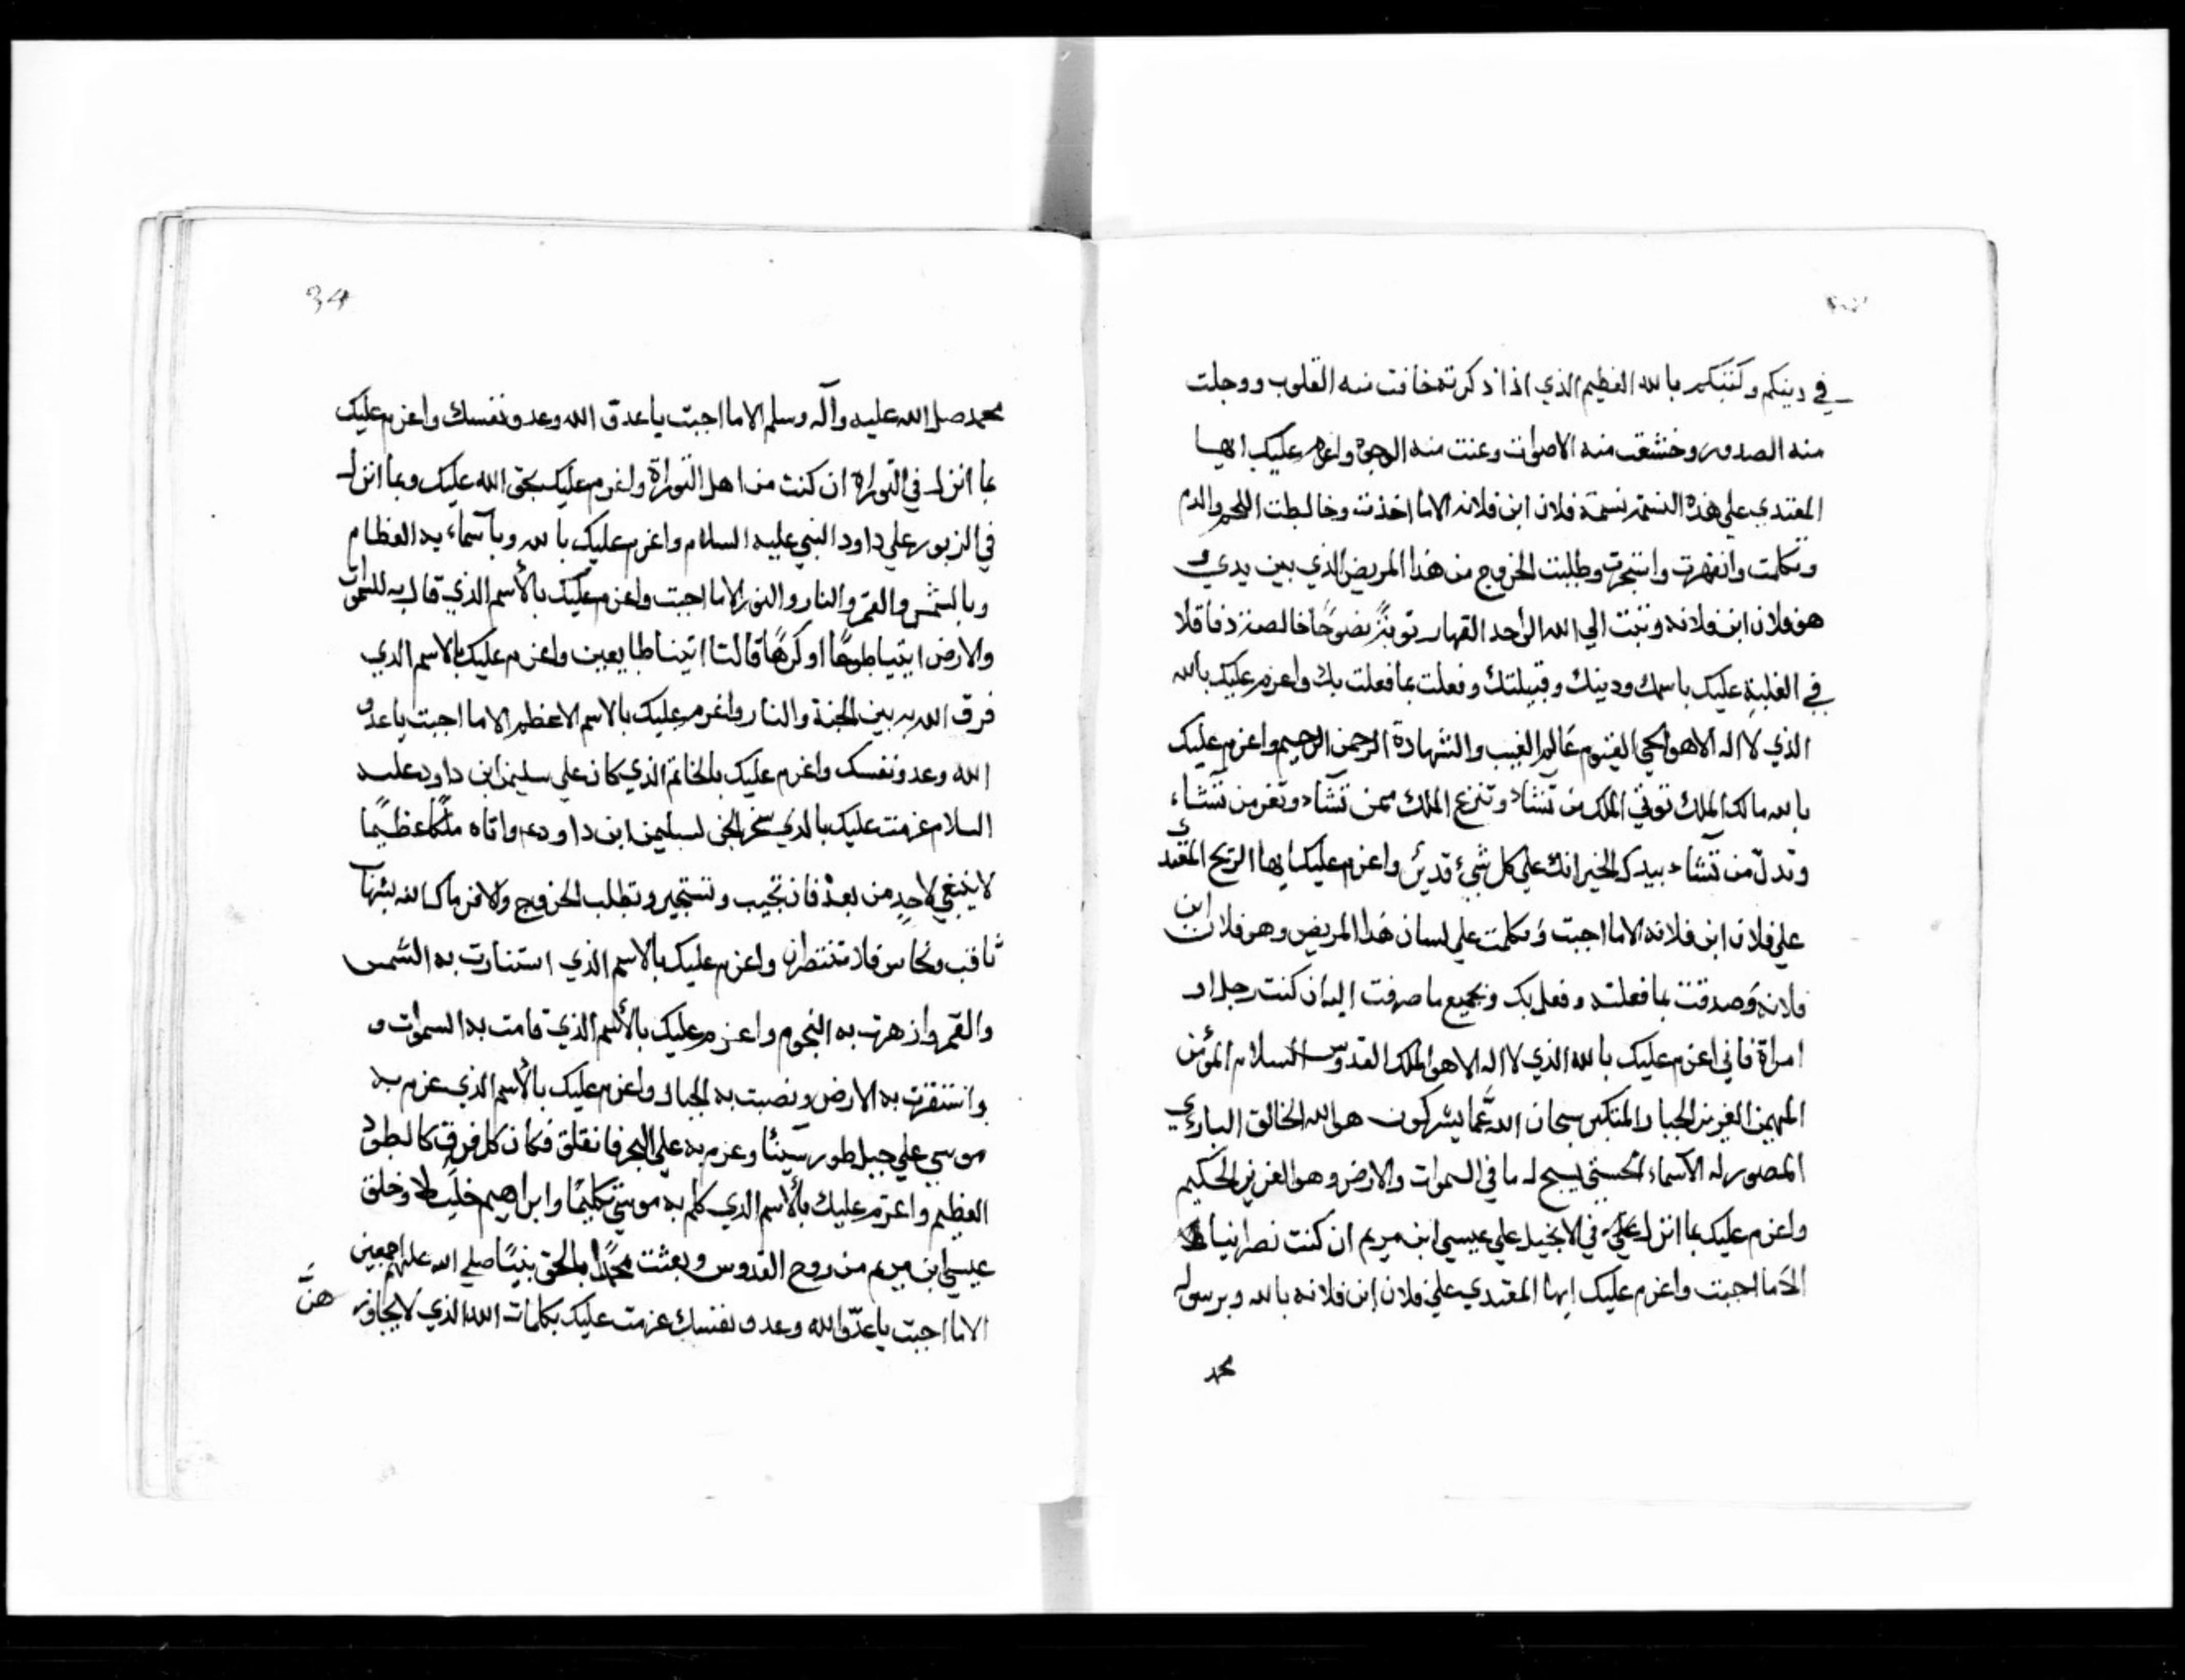 في دينكم وكتبكم بالله العظيم الذي اذا ذكرته خافت منه القلوب ووجلت
منه الصدور وخشعت منه الاصوات وعنت منه الوجوه واعزم عليك ايها
المعتدي علي هذه النسمة نسمة فلان ابن فلانه الاما اخذت وخالطت اللحم والدم
وتكلمت وانقهرت واستجرت وطلبت الخروج من هذا المريض الذي بين يدي و
هو فلان ابن فلانه وتبت الي الله الواحد القهار توبةً نضوحًا خالصة فاقلا
في الغلبة عليك باسمك ودينك وقبيلتك وفعلت بما فعلت بك واعزم عليك بالله
الذي لا اله الاهو الحي القيوم عالم الغيب والشهادة الرحمن الرحيم واعزم عليك
بالله مالك الملك توتي الملك من تشاء وتنزع الملك ممن تشاء وتعز من تشاء
وتدل من تشاء بيدك الخير انك علي كل شيء قدير واعزم عليك ايها الريح المعتدي
علي فلان ابن فلانه الاما اجبت وتكلمت علي لسان هذا المريض وهو فلان ابن
فلانه وصدقت بما فعلته وفعل بك وبجميع ما صرفت اليه ان كنت رجل او
امراة فاني اعزم عليك بالله الذي لا اله الاهو الملك القدوس السلام المؤمن
المهيمن العزيز الجبار المتكبر سبحان الله عما يشركون هو الله الخالق الباري
المصور له الاسماء الحسني يسبح له ما في السموات والارض وهو العزيز الحكيم
واعزم عليك بما انزل علي في الانجيل علي عيسي ابن مريم ان كنت نصرانيا
الاما اجبت واعزم عليك ايها المعتدي علي فلان ابن فلانه بالله وبرسوله
محمد
34
محمد صلى الله عليه وآله وسلم الاما اجبت يا عدو الله وعدو نفسك واعزم عليك
بما انزل في التوراة ان كنت من اهل التوراة واعزم عليك بحق الله عليك وبما انزل
في الزبور علي داود النبي عليه السلام واعزم عليك بالله وباسماءيه العظام
وبالشمس والقمر والنار والنور الاما اجبت واعزم عليك بالأسم الذي قال به للسموات
والارض ايتيا طوعًا او كرهًا قالتا اتينا طايعين واعزم عليك بالاسم الذي
فرق الله به بين الجنة والنار واعزم عليك بالاسم الاعظم الاما اجبت يا عدو
الله وعدو نفسك واعزم عليك بالخاتم الذي كان علي سليمن ابن داود عليه
السلام عزمت عليك بالذي سخر الجن لسليمن ابن داود واتاه ملكًا عظيمًا
لا ينبغي لاحدٍ من بعده فان تجيب وتستجير وتطلب الخروج والا فرماك الله بشهاب
ثاقب ونحاس فلا تنتصران واعزم عليك بالاسم الذي استنارت به الشمس
والقمر وازهرت به النجوم واعزم عليك بالأسم الذي قامت به السموات و
واستقرت به الارض ونصبت به الجبال واعزم عليك بالأسم الذي عزم به
موسي علي جبل طور سيناء وعزم به علي البحر فانفلق فكان كل فرق كالطود
العظيم واعزم عليك بالأسم الذي كلم به موسي تكليمًا وابراهيم خليلا وخلق
عيسي ابن مريم من روح القدوس وبعثت محمدًا بالحق نبيًا صلي الله عليهم اجمعين
الاما اجبت يا عدو الله وعدو نفسك عزمت عليك بكلمات الله الذي لا يجاوز
هنَّ